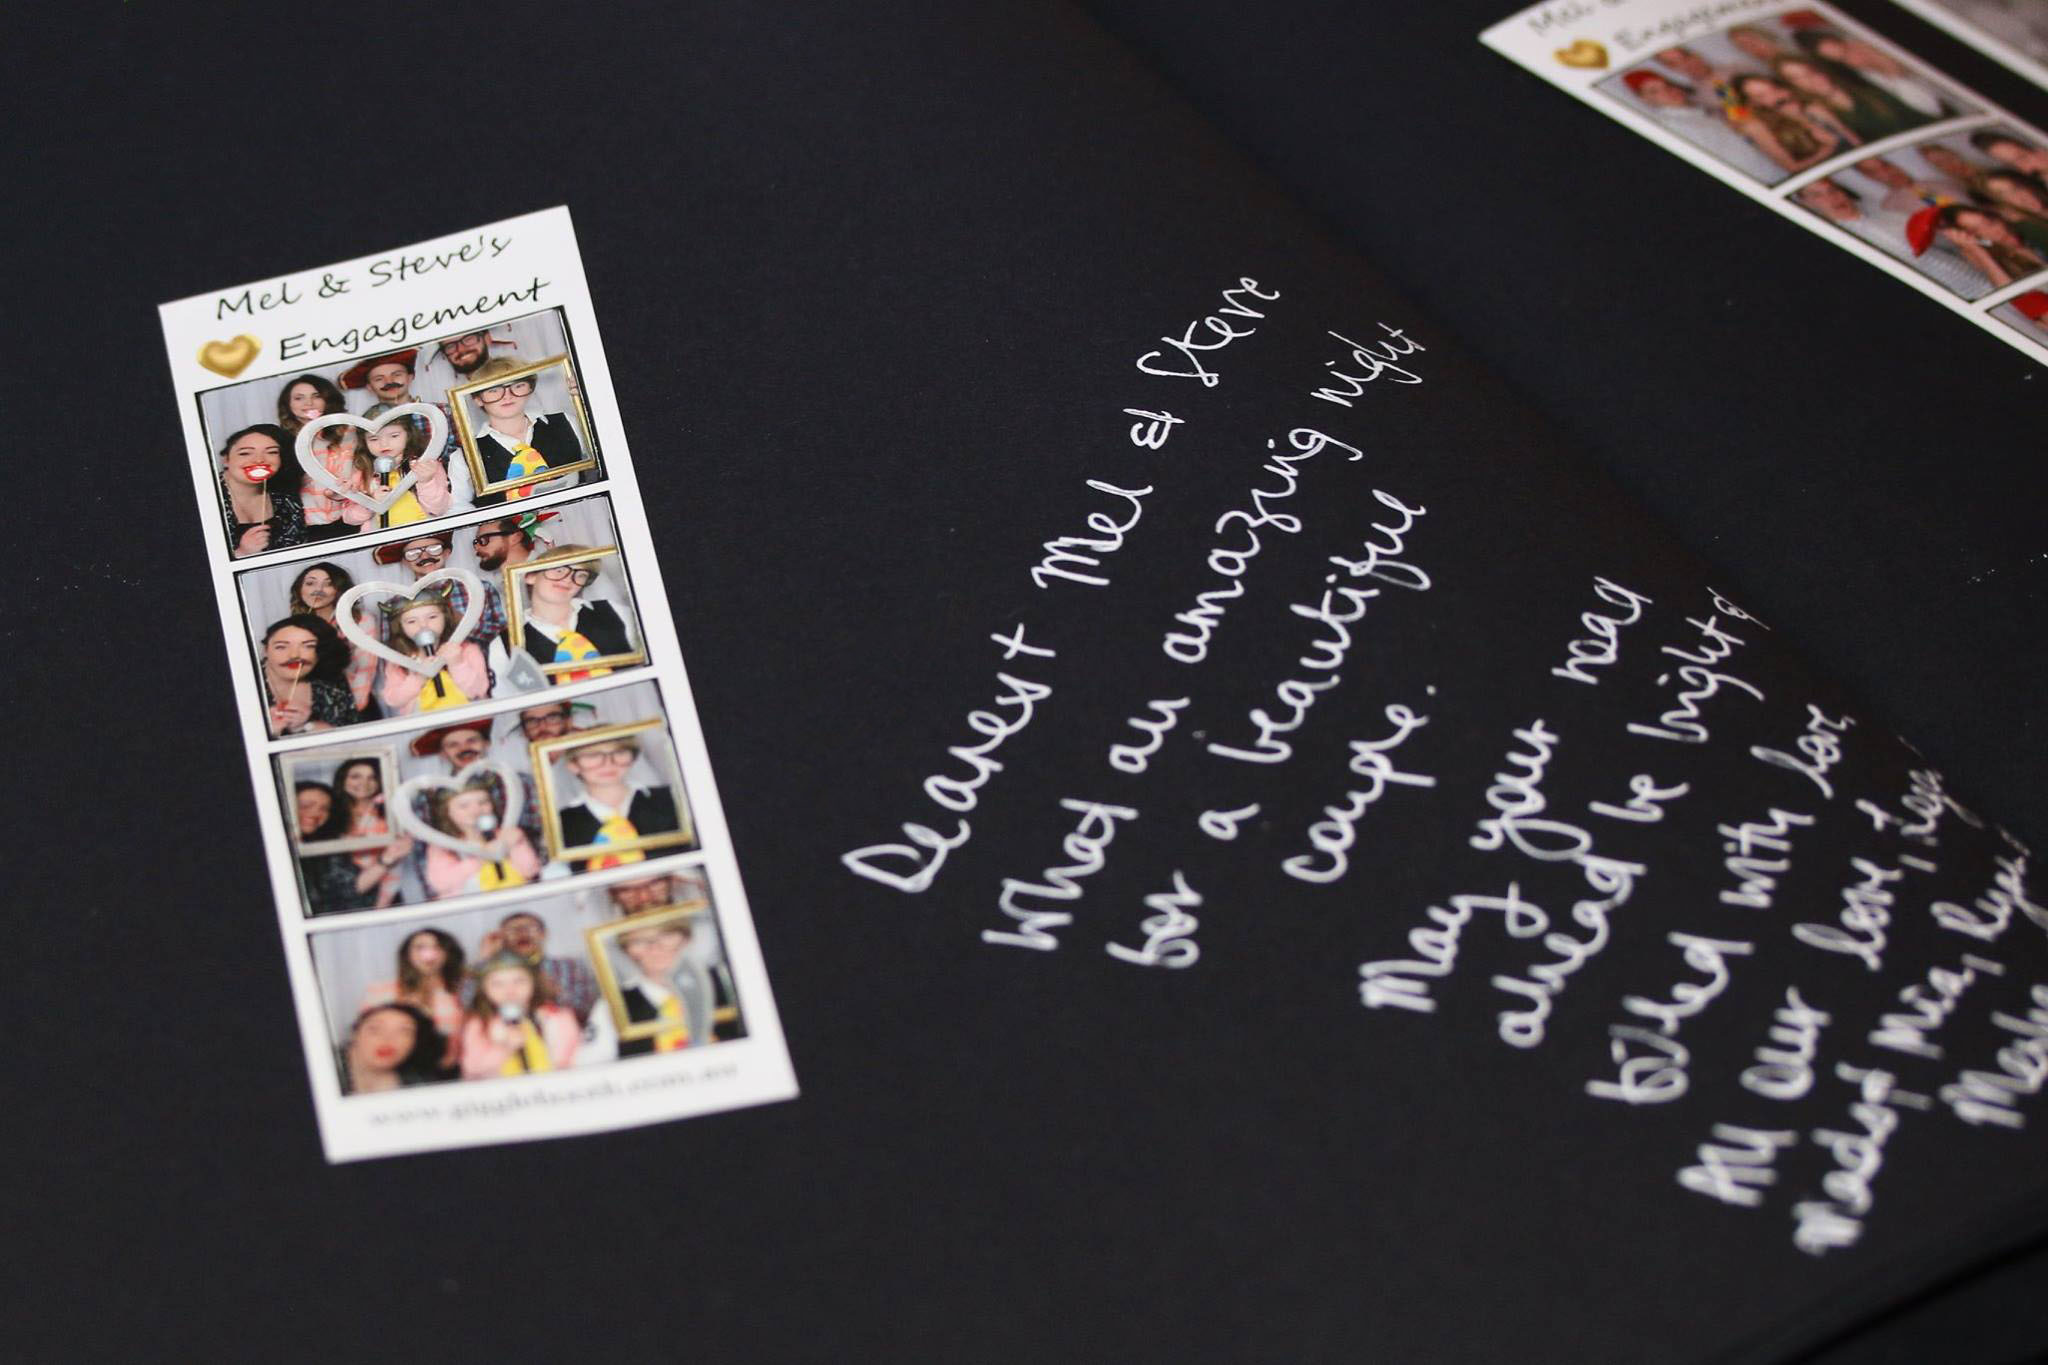 Mel & Steve's
Engagement
www.gigglebooth.com.au
Dearest Mel & Steve
What an amazing night
for a beautiful
couple.
May your road
ahead be bright &
filled with love
All our love,
Mia,
Mel &
Engagement